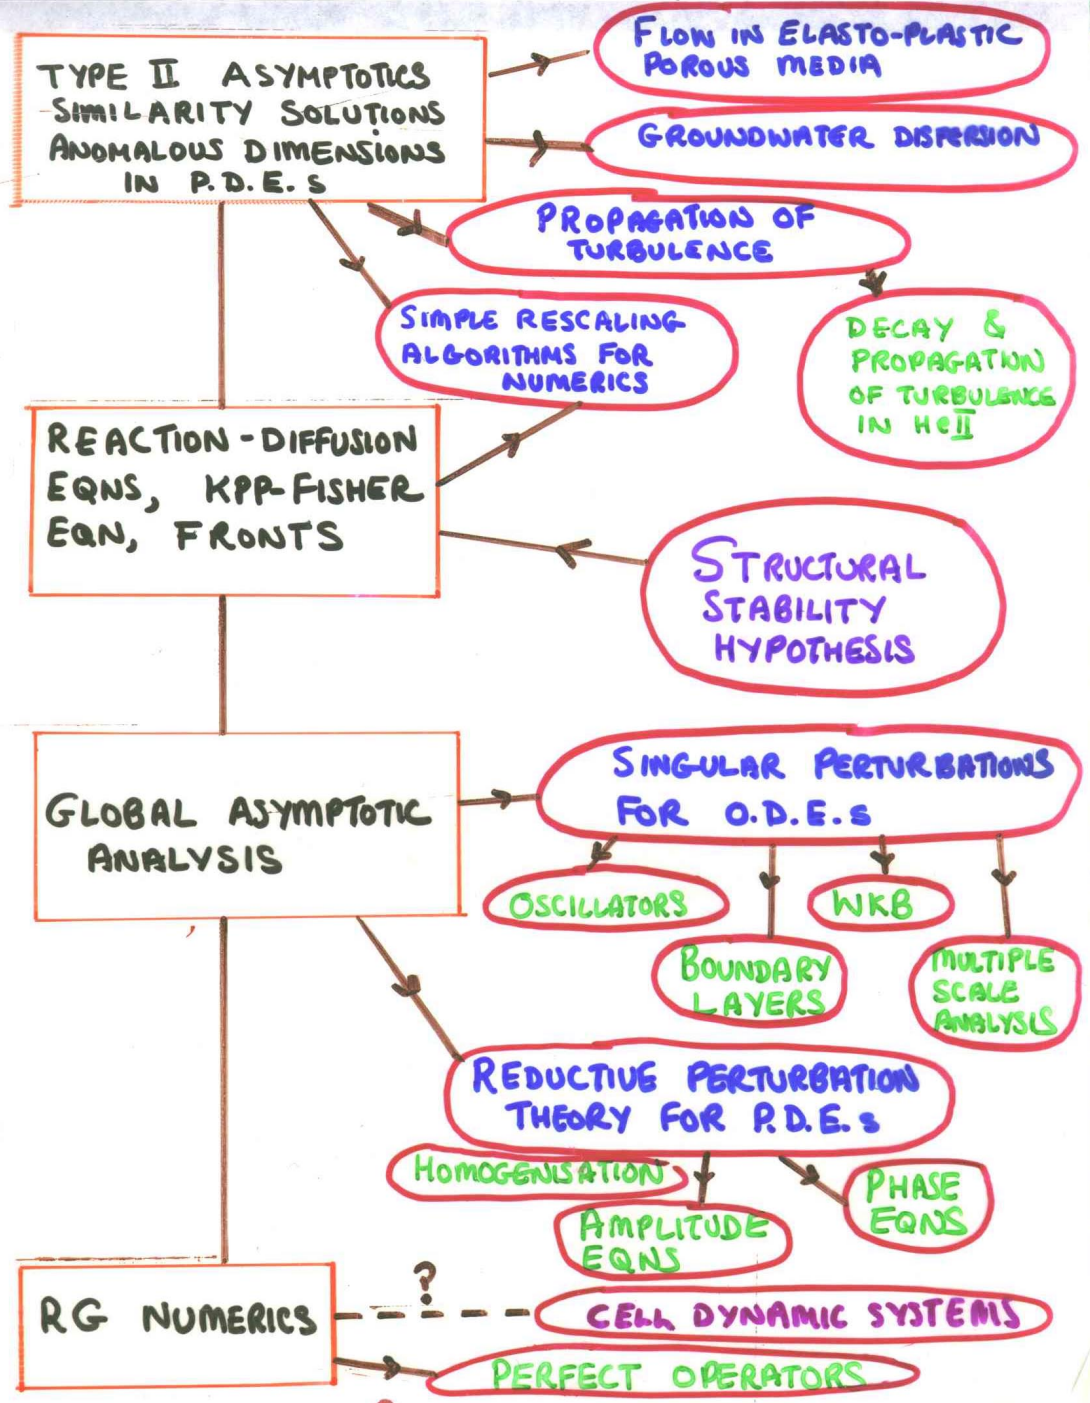 FLOW IN ELASTO-PLASTIC
POROUS MEDIA
TYPE II ASYMPTOTICS
SIMILARITY SOLUTIONS
ANOMALOUS DIMENSIONS
IN P.D.E.s
GROUNDWATER DISPERSION
PROPAGATION OF
TURBULENCE
SIMPLE RESCALING
ALGORITHMS FOR
NUMERICS
DECAY &
PROPAGATION
OF TURBULENCE
IN HeII
REACTION-DIFFUSION
EQNS, KPP-FISHER
EQN, FRONTS
STRUCTURAL
STABILITY
HYPOTHESIS
GLOBAL ASYMPTOTIC
ANALYSIS
SINGULAR PERTURBATIONS
FOR O.D.E.s
OSCILLATORS
WKB
BOUNDARY
LAYERS
MULTIPLE
SCALE
ANALYSIS
REDUCTIVE PERTURBATION
THEORY FOR P.D.E.s
HOMOGENISATION
AMPLITUDE
EQNS
PHASE
EQNS
RG NUMERICS
?
CELL DYNAMIC SYSTEMS
PERFECT OPERATORS